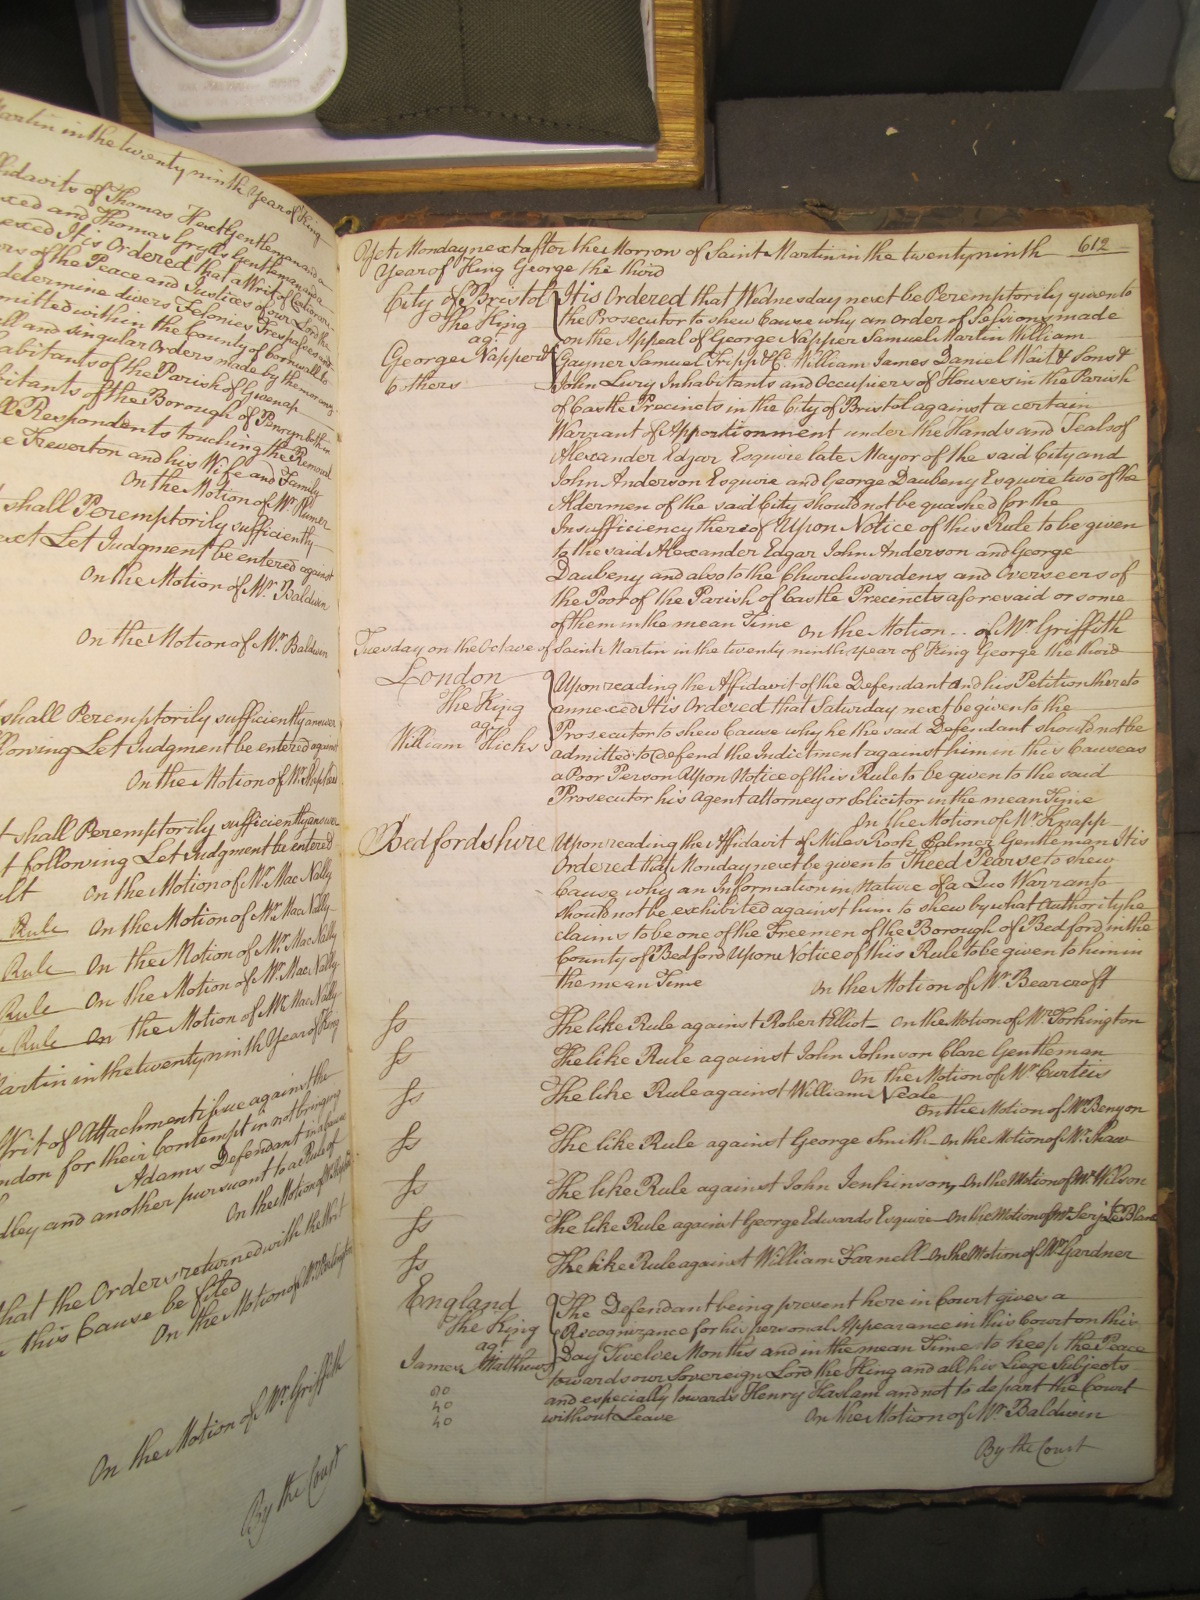 Martin in the twenty ninth Year of King
Affidavits of Thomas Hext Gentleman and a
and Thomas Grylls Gentleman and a
It is Ordered that a Writ of Certiorari
of the Peace and Justices of our Lord the
determine divers Felonies Trespasses and
within the County of Cornwall to
all and singular Orders made by the
of the Parish of Gwenap
of the Borough of Penryn both in
Respondents touching the Removal
Treverton and his Wife and Family
On the Motion of Mr. Rumer
shall Peremptorily sufficiently
Let Judgment be entered against
On the Motion of Mr. Baldwin
On the Motion of Mr. Baldwin
shall Peremptorily sufficiently answer
following Let Judgment be entered against
On the Motion of Mr.
shall Peremptorily sufficiently answer
following Let Judgment be entered
On the Motion of Mr. Mac Nally
Rule On the Motion of Mr. Mac Nally
Rule On the Motion of Mr. Mac Nally
Rule On the Motion of Mr. Mac Nally
Rule On the Motion of Mr. Mac Nally
Martin in the twenty ninth Year of King
Writ of Attachment issue against the
for their Contempt in not bringing
Adams Defendant in a Cause
and another pursuant to a Rule of
On the Motion of Mr.
that the Orders returned with the Writ
this Cause be filed
On the Motion of Mr.
On the Motion of Mr. Griffith
By the Court
612
Yet Monday next after the Morrow of Saint Martin in the twenty ninth
Year of King George the third
City of Bristol
The King
agt.
George Napper &
Others
It is Ordered that Wednesday next be Peremptorily given to
the Prosecutor to shew Cause why an Order of Sessions made
on the Appeal of George Napper Samuel Martin William
Gayner Samuel Tripp & Co. William James Daniel Wait & Sons &
John Lury Inhabitants and Occupiers of Houses in the Parish
of Castle Precincts in the City of Bristol against a certain
Warrant of Apportionment under the Hands and Seals of
Alexander Edgar Esquire late Mayor of the said City and
John Anderson Esquire and George Daubeny Esquire two of the
Aldermen of the said City should not be quashed for the
Insufficiency thereof Upon Notice of this Rule to be given
to the said Alexander Edgar John Anderson and George
Daubeny and also to the Churchwardens and Overseers of
the Poor of the Parish of Castle Precincts aforesaid or some
of them in the mean Time On the Motion .. of Mr. Griffith
Tuesday on the Octave of Saint Martin in the twenty ninth year of King George the third
London
The King
agt.
William Hicks
Upon reading the Affidavit of the Defendant and his Petition thereto
annexed It is Ordered that Saturday next be given to the
Prosecutor to shew Cause why he the said Defendant should not be
admitted to defend the Indictment against him in this Cause as
a Poor Person Upon Notice of this Rule to be given to the said
Prosecutor his Agent attorney or solicitor in the mean Time
On the Motion of Mr. Knapp
Bedfordshire
Upon reading the Affidavit of Miles Rook Palmer Gentleman It is
Ordered that Monday next be given to Theed Pearse to shew
Cause why an Information in Nature of a Quo Warranto
should not be exhibited against him to shew by what Authority he
claims to be one of the Freemen of the Borough of Bedford in the
County of Bedford Upon Notice of this Rule to be given to him in
the mean Time On the Motion of Mr. Bearcroft
fs The like Rule against Robert Elliot On the Motion of Mr. Torkington
fs The like Rule against John Johnson Clare Gentleman
On the Motion of Mr. Curteis
fs The like Rule against William Neale
On the Motion of Mr. Benyon
fs The like Rule against George Smith On the Motion of Mr. Shaw
fs The like Rule against John Jenkinson, On the Motion of Mr. Wilson
fs The like Rule against George Edwards Esquire On the Motion of Mr. Serjt. Le Blanc
fs The like Rule against William Farnell On the Motion of Mr. Gardner
England
The King
agt.
James Matthews
40
40
The Defendant being present here in Court gives a
Recognizance for his personal Appearance in this Court on this
Day Twelve Months and in the mean Time to keep the Peace
towards our Sovereign Lord the King and all his Liege Subjects
and especially towards Henry Haslam and not to depart the Court
without Leave On the Motion of Mr. Baldwin
By the Court